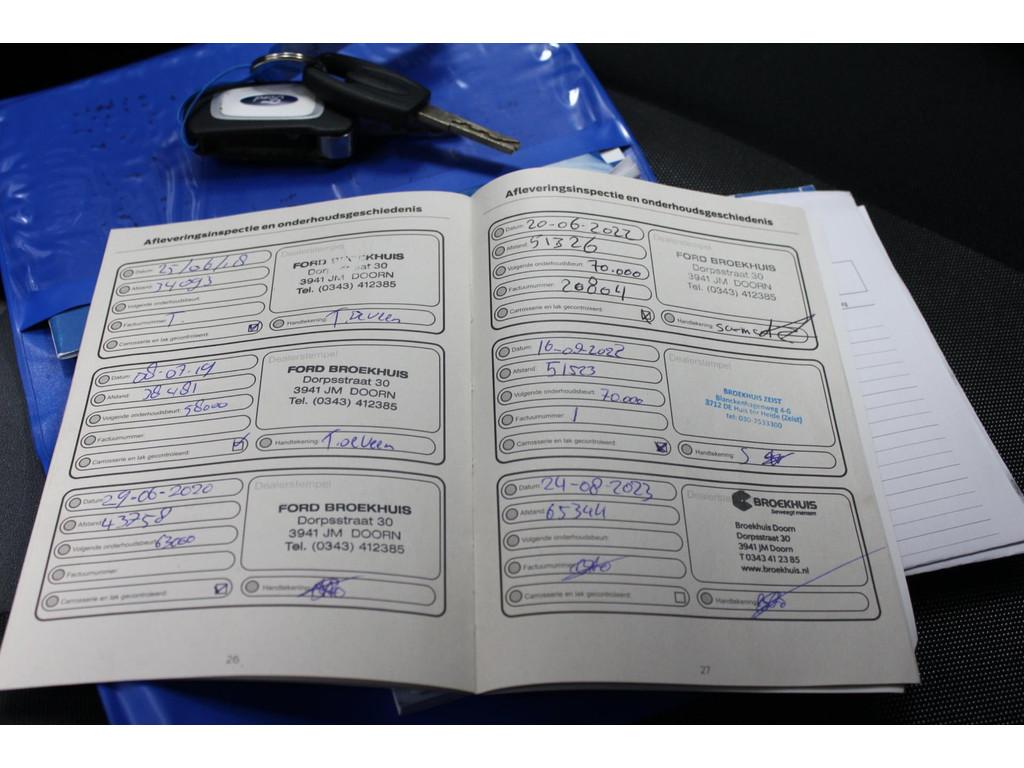 Ford
Afleveringsinspectie en onderhoudsgeschiedenis
Datum: 25/06/18
Afstand: 34093
Volgende onderhoudsbeurt:
Factuurnummer:
Carrosserie en lak gecontroleerd:
Dealerstempel
FORD BROEKHUIS
Dorpsstraat 30
3941 JM DOORN
Tel. (0343) 412385
Handtekening:
Datum: 08-07-19
Afstand: 38481
Volgende onderhoudsbeurt: 58000
Factuurnummer:
Carrosserie en lak gecontroleerd:
Dealerstempel
FORD BROEKHUIS
Dorpsstraat 30
3941 JM DOORN
Tel. (0343) 412385
Handtekening:
Datum: 29-06-2020
Afstand: 43758
Volgende onderhoudsbeurt: 63000
Factuurnummer:
Carrosserie en lak gecontroleerd:
Dealerstempel
FORD BROEKHUIS
Dorpsstraat 30
3941 JM DOORN
Tel. (0343) 412385
Handtekening:
26
Afleveringsinspectie en onderhoudsgeschiedenis
Datum: 20-06-2022
Afstand: 51326
Volgende onderhoudsbeurt: 70.000
Factuurnummer: 20804
Carrosserie en lak gecontroleerd:
Dealerstempel
FORD BROEKHUIS
Dorpsstraat 30
3941 JM DOORN
Tel. (0343) 412385
Handtekening:
Datum: 16-09-2022
Afstand: 51523
Volgende onderhoudsbeurt: 70.000
Factuurnummer: 1
Carrosserie en lak gecontroleerd:
Dealerstempel
BROEKHUIS ZEIST
Blanckenhagenweg 4-6
3712 DE Huis ter Heide (Zeist)
tel: 030-7533300
Handtekening:
Datum: 24-08-2023
Afstand: 65344
Volgende onderhoudsbeurt:
Factuurnummer:
Carrosserie en lak gecontroleerd:
Dealerstempel
BROEKHUIS
beweegt mensen
Broekhuis Doorn
Dorpsstraat 30
3941 JM Doorn
T 0343 41 23 85
www.broekhuis.nl
Handtekening:
27